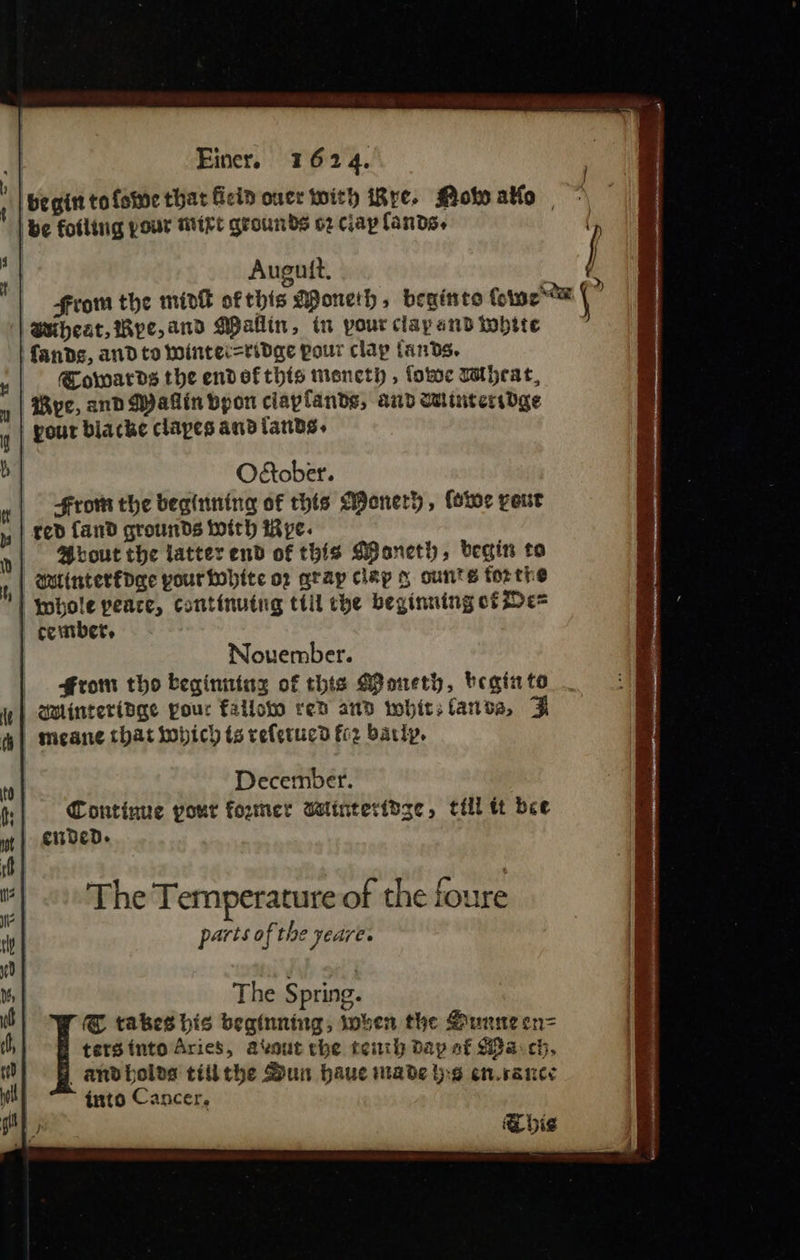 Einer. 1624.
begin to sowe that field ouer with Rye. Now also
be foiling your mixt grounds or clay lands.
August.
From the midst of this Moneth, begin to sowe
Wheat, Rye, and Maslin, in your clay and white
sands, and to winter-ridge your clay lands.
Towards the end of this moneth, sowe Wheat,
Rye, and Maslin vpon clay sands, and Winteridge
your blacke clayes and sands.
October.
From the beginning of this Moneth, sowe your
red sand grounds with Rye.
About the latter end of this Moneth, begin to
Winterridge your white or gray clay grounds for the
whole yeare, continuing till the beginning of De=
cember.
Nouember.
From the beginning of this Moneth, begin to
Winteridge your fallow red and white sands, I
meane that which is reserued for barly.
December.
Continue your former Winteridge, till it bee
ended.
The Temperature of the foure
parts of the yeare.
The Spring.
IT takes his beginning, when the Sunne en=
ters into Aries, about the tenth day of March,
and holds till the Sun haue made his entrance
into Cancer.
This